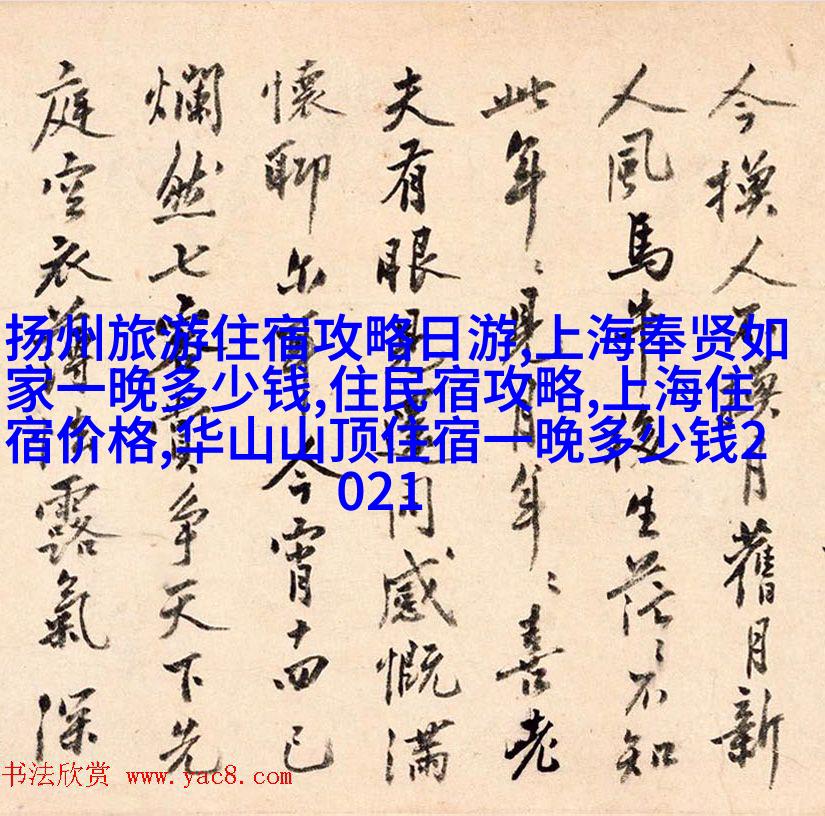 今換人不換月舊月新
人風馬牛後生茫〻不知
此年〻是月年〻喜老
夫有眼同感慨滿
懷聊尔今宵十四已
爛然七賓爭天下先
庭空衣薄露氣深
扬州旅游住宿攻略日游,上海奉贤如
家一晚多少钱,住民宿攻略,上海住
宿价格,华山山顶住宿一晚多少钱2
021
书法欣赏 www.yac8.com